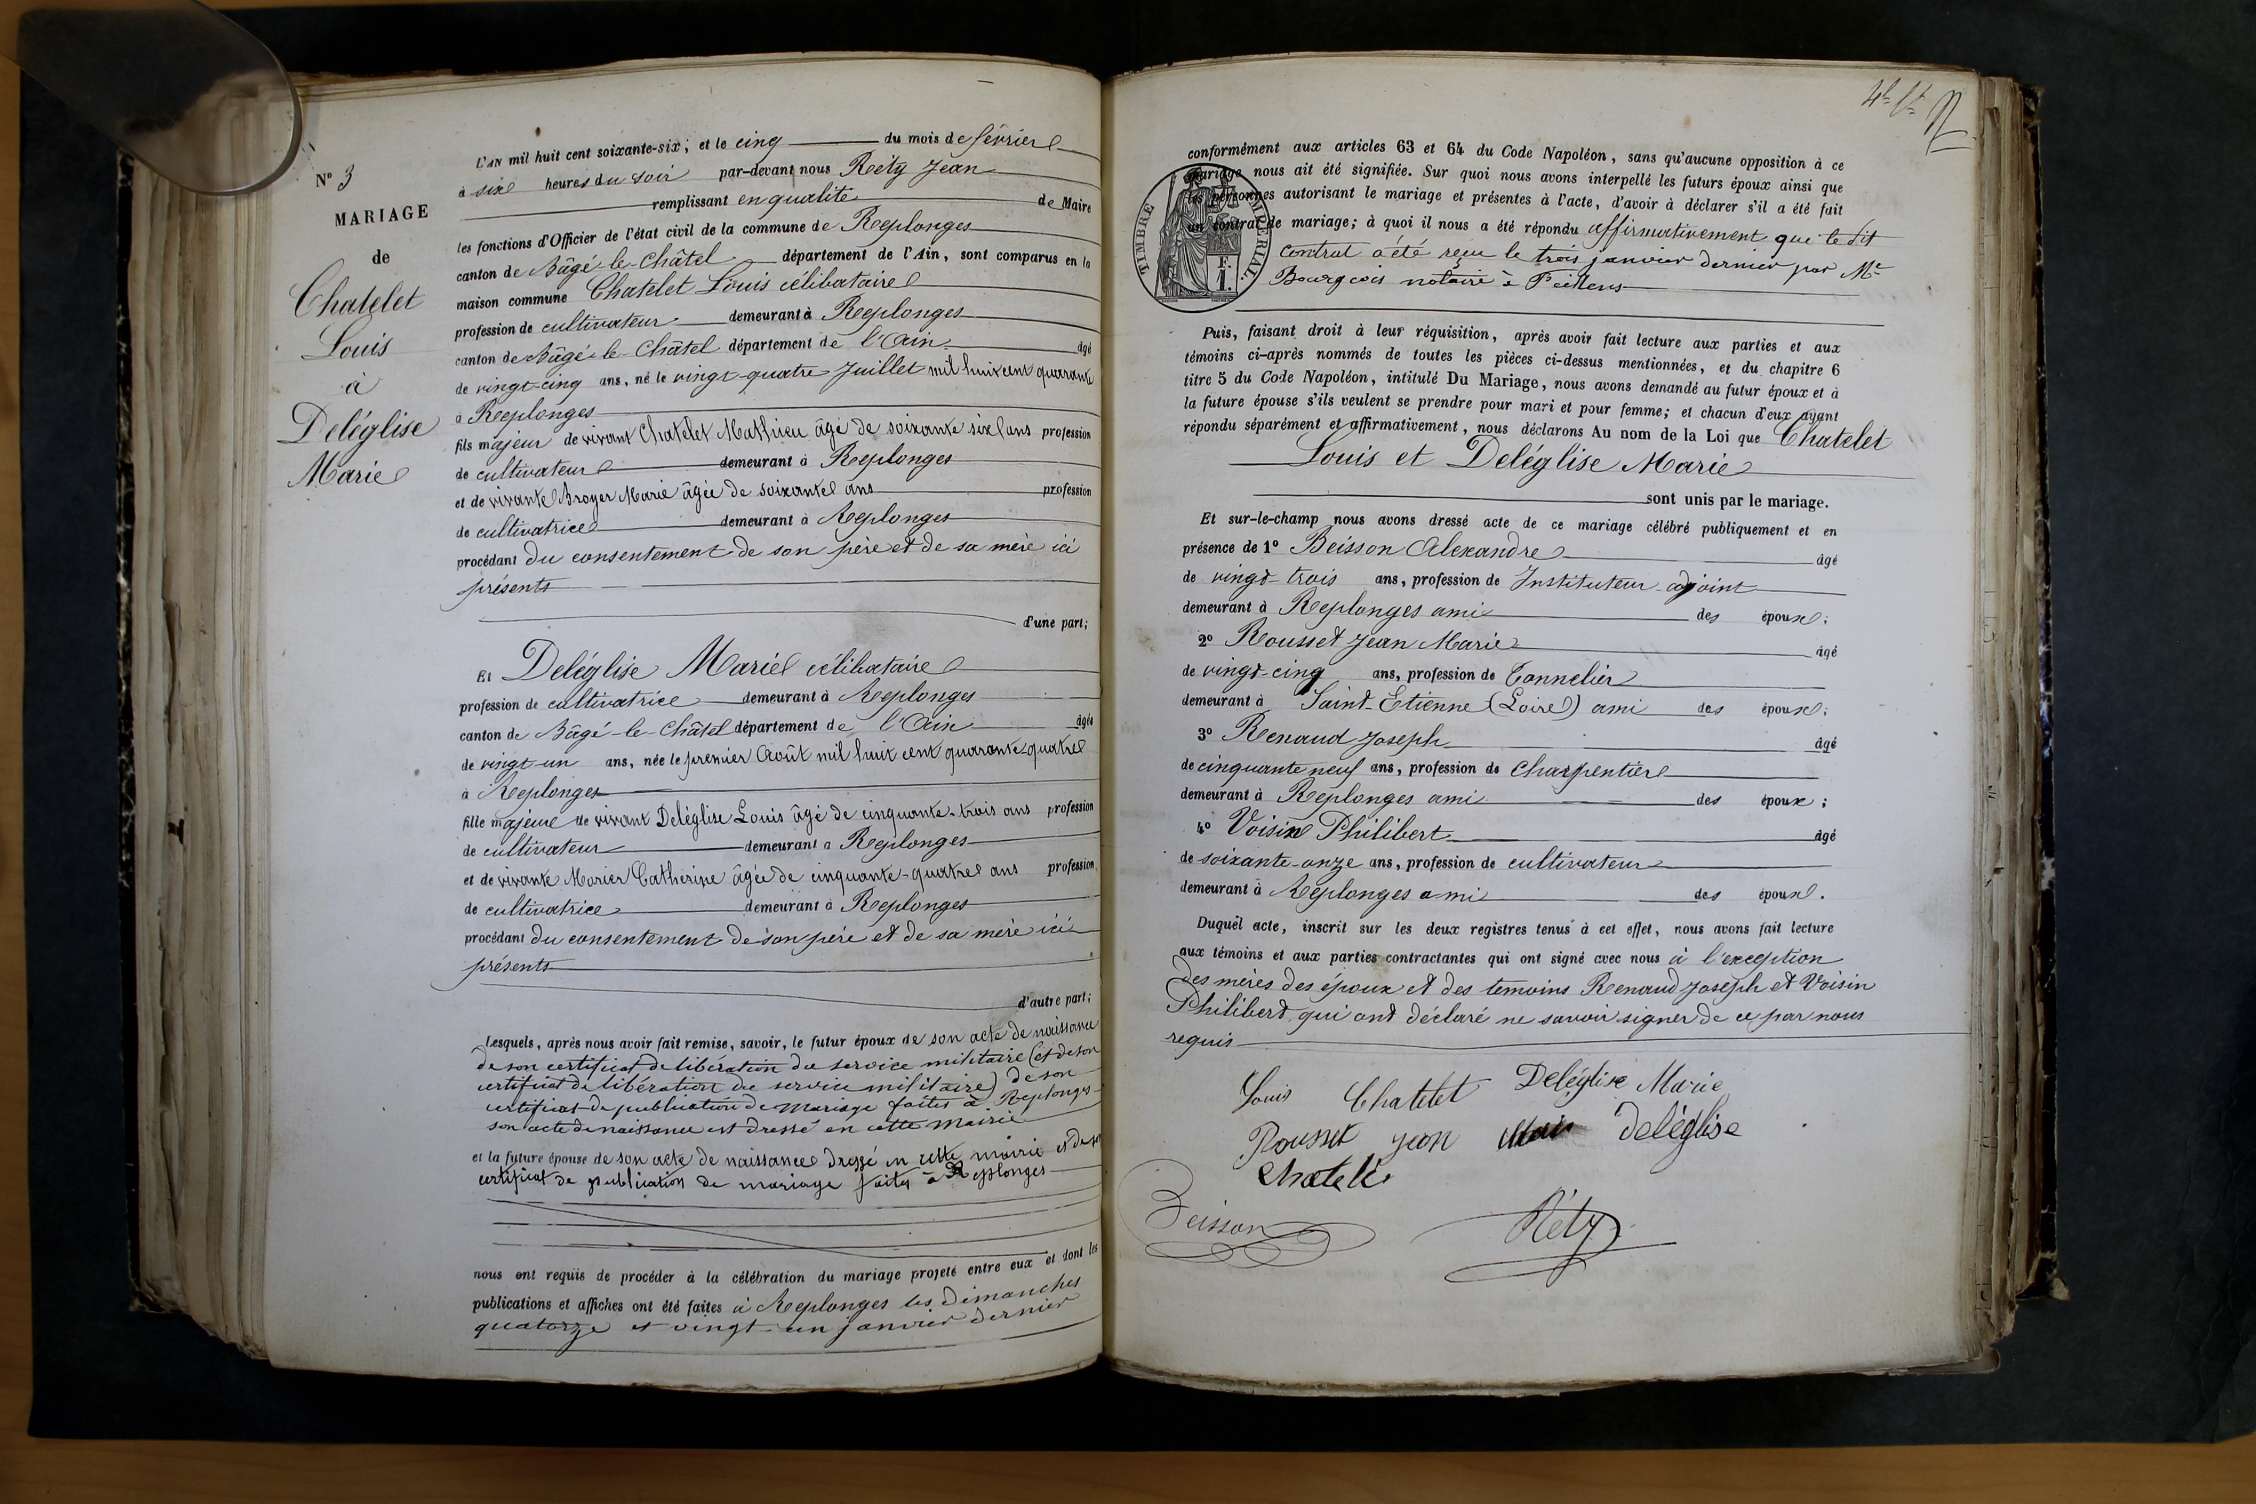 N° 3
MARIAGE
de
Chatelet
Louis
à
Deléglise
Marie
L'AN mil huit cent soixante-six; et le cinq du mois de février
à six heures du soir par-devant nous Réty Jean
remplissant en qualité de Maire
les fonctions d'Officier de l'état civil de la commune de Replonges
canton de Bâgé-le-Châtel département de l'Ain, sont comparus en la
maison commune Chatelet Louis célibataire
profession de cultivateur demeurant à Replonges
canton de Bâgé-le-Châtel département de l'Ain âgé
de vingt-cinq ans, né le vingt-quatre Juillet mil huit cent quarante
à Replonges
fils majeur de vivant Chatelet Mathieu âgé de soixante six ans profession
de cultivateur demeurant à Replonges
et de vivante Broyer Marie âgée de soixante ans profession
de cultivatrice demeurant à Replonges
procédant du consentement de son père et de sa mère ici
présents
d'une part;
Et Deléglise Marie célibataire
profession de cultivatrice demeurant à Replonges
canton de Bâgé-le-Châtel département de l'Ain âgée
de vingt-un ans, née le premier Août mil huit cent quarante-quatre
à Replonges
fille majeure de vivant Deléglise Louis âgé de cinquante-trois ans profession
de cultivateur demeurant à Replonges
et de vivante Morier Catherine âgée de cinquante-quatre ans profession
de cultivatrice demeurant à Replonges
procédant du consentement de son père et de sa mère ici
présents
d'autre part;
Lesquels, après nous avoir fait remise, savoir, le futur époux de son acte de naissance
de son certificat de libération du service militaire (et de son
certificat de libération du service militaire) de son
certificat de publication de mariage faites à Replonges
son acte de naissance est dressé en cette mairie
et la future épouse de son acte de naissance dressé en cette mairie et de son
certificat de publication de mariage faites à Replonges
nous ont requis de procéder à la célébration du mariage projeté entre eux et dont les
publications et affiches ont été faites à Replonges les Dimanches
quatorze et vingt-un janvier dernier
conformément aux articles 63 et 64 du Code Napoléon, sans qu'aucune opposition à ce
mariage nous ait été signifiée. Sur quoi nous avons interpellé les futurs époux ainsi que
les personnes autorisant le mariage et présentes à l'acte, d'avoir à déclarer s'il a été fait
un contrat de mariage; à quoi il nous a été répondu affirmativement que le dit
contrat a été reçu le trois janvier dernier par Me
Bourgeois notaire à Feillens
TIMBRE IMPÉRIAL
F.
1.
Puis, faisant droit à leur réquisition, après avoir fait lecture aux parties et aux
témoins ci-après nommés de toutes les pièces ci-dessus mentionnées, et du chapitre 6
titre 5 du Code Napoléon, intitulé Du Mariage, nous avons demandé au futur époux et à
la future épouse s'ils veulent se prendre pour mari et pour femme; et chacun d'eux ayant
répondu séparément et affirmativement, nous déclarons Au nom de la Loi que Chatelet
Louis et Deléglise Marie
sont unis par le mariage.
Et sur-le-champ nous avons dressé acte de ce mariage célébré publiquement et en
présence de 1° Beisson Alexandre âgé
de vingt-trois ans, profession de Instituteur-adjoint
demeurant à Replonges ami des époux;
2° Rousset Jean Marie âgé
de vingt-cinq ans, profession de Tonnelier
demeurant à Saint-Etienne (Loire) ami des époux;
3° Renaud Joseph âgé
de cinquante neuf ans, profession de charpentier
demeurant à Replonges ami des époux;
4° Voisin Philibert âgé
de soixante-onze ans, profession de cultivateur
demeurant à Replonges ami des époux.
Duquel acte, inscrit sur les deux registres tenus à cet effet, nous avons fait lecture
aux témoins et aux parties contractantes qui ont signé avec nous à l'exception
des mères des époux et des témoins Renaud Joseph et Voisin
Philibert qui ont déclaré ne savoir signer de ce par nous
requis
Louis Chatelet Deléglise Marie
Rousset Jean Deléglise
Chatelet
Beisson Réty